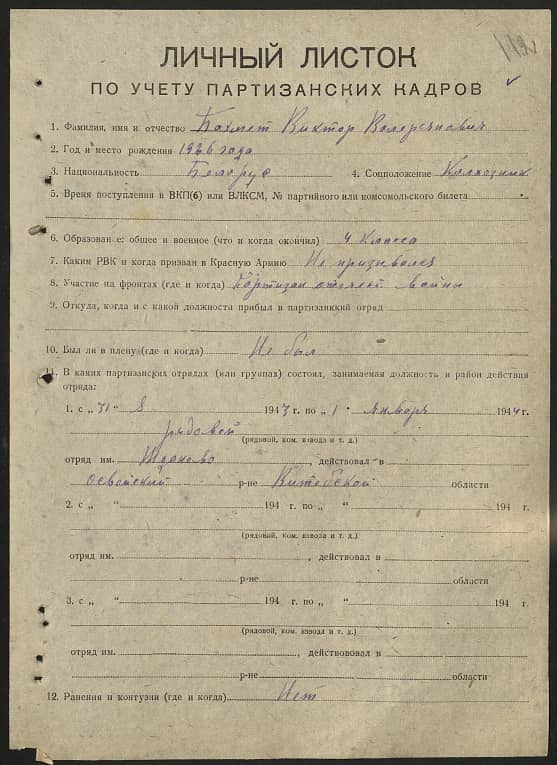 ЛИЧНЫЙ ЛИСТОК
ПО УЧЕТУ ПАРТИЗАНСКИХ КАДРОВ
1. Фамилия, имя и отчество Бахмет Виктор Валерьянович
2. Год и место рождения 1926 года
3. Национальность Беларус 4. Соцположение Колхозник
5. Время поступления в ВКП(б) или ВЛКСМ, № партийного или комсомольского билета
6. Образование: общее и военное (что и когда окончил) 4 класса
7. Каким РВК и когда призван в Красную Армию Не призывался
8. Участие на фронтах (где и когда) Партизан отечест войны
9. Откуда, когда и с какой должности прибыл в партизанский отряд
10. Был ли в плену (где и когда) Не был
11. В каких партизанских отрядах (или группах) состоял, занимаемая должность и район действия
отряда:
1. с „31“ 8 1943 г. по „1“ января 1944 г.
рядовой
(рядовой, ком. взвода и т. д.)
отряд им. Жданово действовал в
Освейский р-не Витебской области
2. с „ “ 194 г. по „ “ 194 г.
(рядовой, ком. взвода и т. д.)
отряд им. , действовал в
р-не области
3. с „ “ 194 г. по „ “ 194 г.
(рядовой, ком. взвода и т. д.)
отряд им. , действововал в
р-не области
12. Ранения и контузии (где и когда) Нет